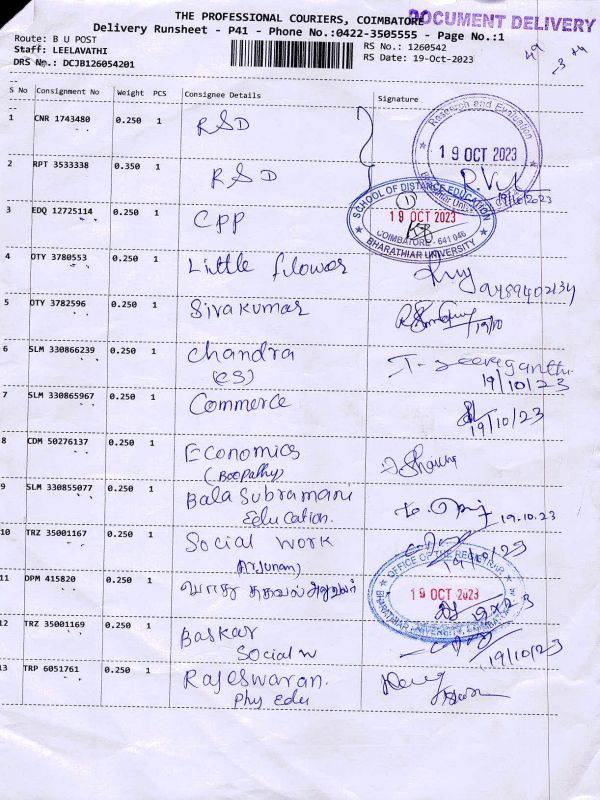 THE PROFESSIONAL COURIERS, COIMBATORE
DOCUMENT DELIVERY
Delivery Runsheet - P41 - Phone No.:0422-3505555 - Page No.:1
Route: B U POST
Staff: LEELAVATHI
DRS No.: DCJB126054201
RS No.: 1260542
RS Date: 19-Oct-2023
S No Consignment No Weight PCS Consignee Details Signature
1 CNR 1743480 0.250 1 RSD
Research and Evaluation
19 OCT 2023
2 RPT 3533338 0.350 1 RSD
19/10/2023
SCHOOL OF DISTANCE EDUCATION
(1)
19 OCT 2023
COIMBATORE - 641 046
BHARATHIAR UNIVERSITY
3 EDQ 12725114 0.250 1 CPP
4 OTY 3780553 0.250 1 Little flower
9489402134
5 OTY 3782596 0.250 1 Sivakumar
19/10
6 SLM 330866239 0.250 1 Chandra
(CS)
19/10/23
7 SLM 330865967 0.250 1 Commerce
19/10/23
8 CDM 50276137 0.250 1 Economics
(Boopathy)
9 SLM 330855077 0.250 1 Bala Subramani
Education.
19.10.23
10 TRZ 35001167 0.250 1 Social Work
19/10/23
OFFICE OF THE REGISTRAR
19 OCT 2023
BHARATHIAR UNIVERSITY, COIMBATORE
11 DPM 415820 0.250 1
12 TRZ 35001169 0.250 1 Baskar
Social W
19/10/23
13 TRP 6051761 0.250 1 Rajeswaran.
Phy Edu